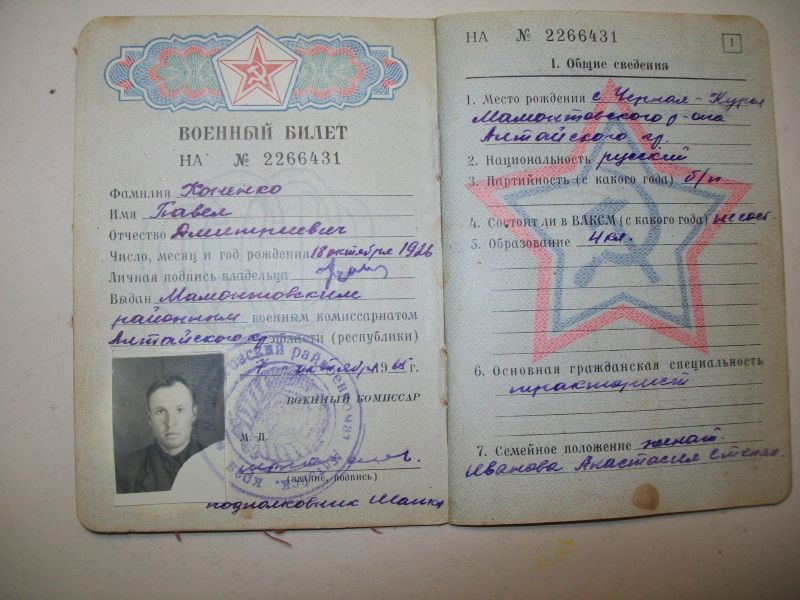 ВОЕННЫЙ БИЛЕТ
НА № 2266431
Фамилия Коненко
Имя Павел
Отчество Дмитриевич
Число, месяц и год рождения 18 октября 1926
Личная подпись владельца
Выдан Мамонтовским
районным военным комиссариатом
Алтайского кр области (республики)
7 1965 г.
ВОЕННЫЙ КОМИССАР
М. П.
(звание, подпись)
подполковник
НА № 2266431
1
1. Общие сведения
1. Место рождения с. Черная-Курья
Мамонтовского р-она
Алтайского кр.
2. Национальность русский
3. Партийность (с какого года) б/п
4. Состоит ли в ВЛКСМ (с какого года) не сост.
5. Образование 4 кл.
6. Основная гражданская специальность
тракторист
7. Семейное положение женат
Иванова Анастасия Степан.